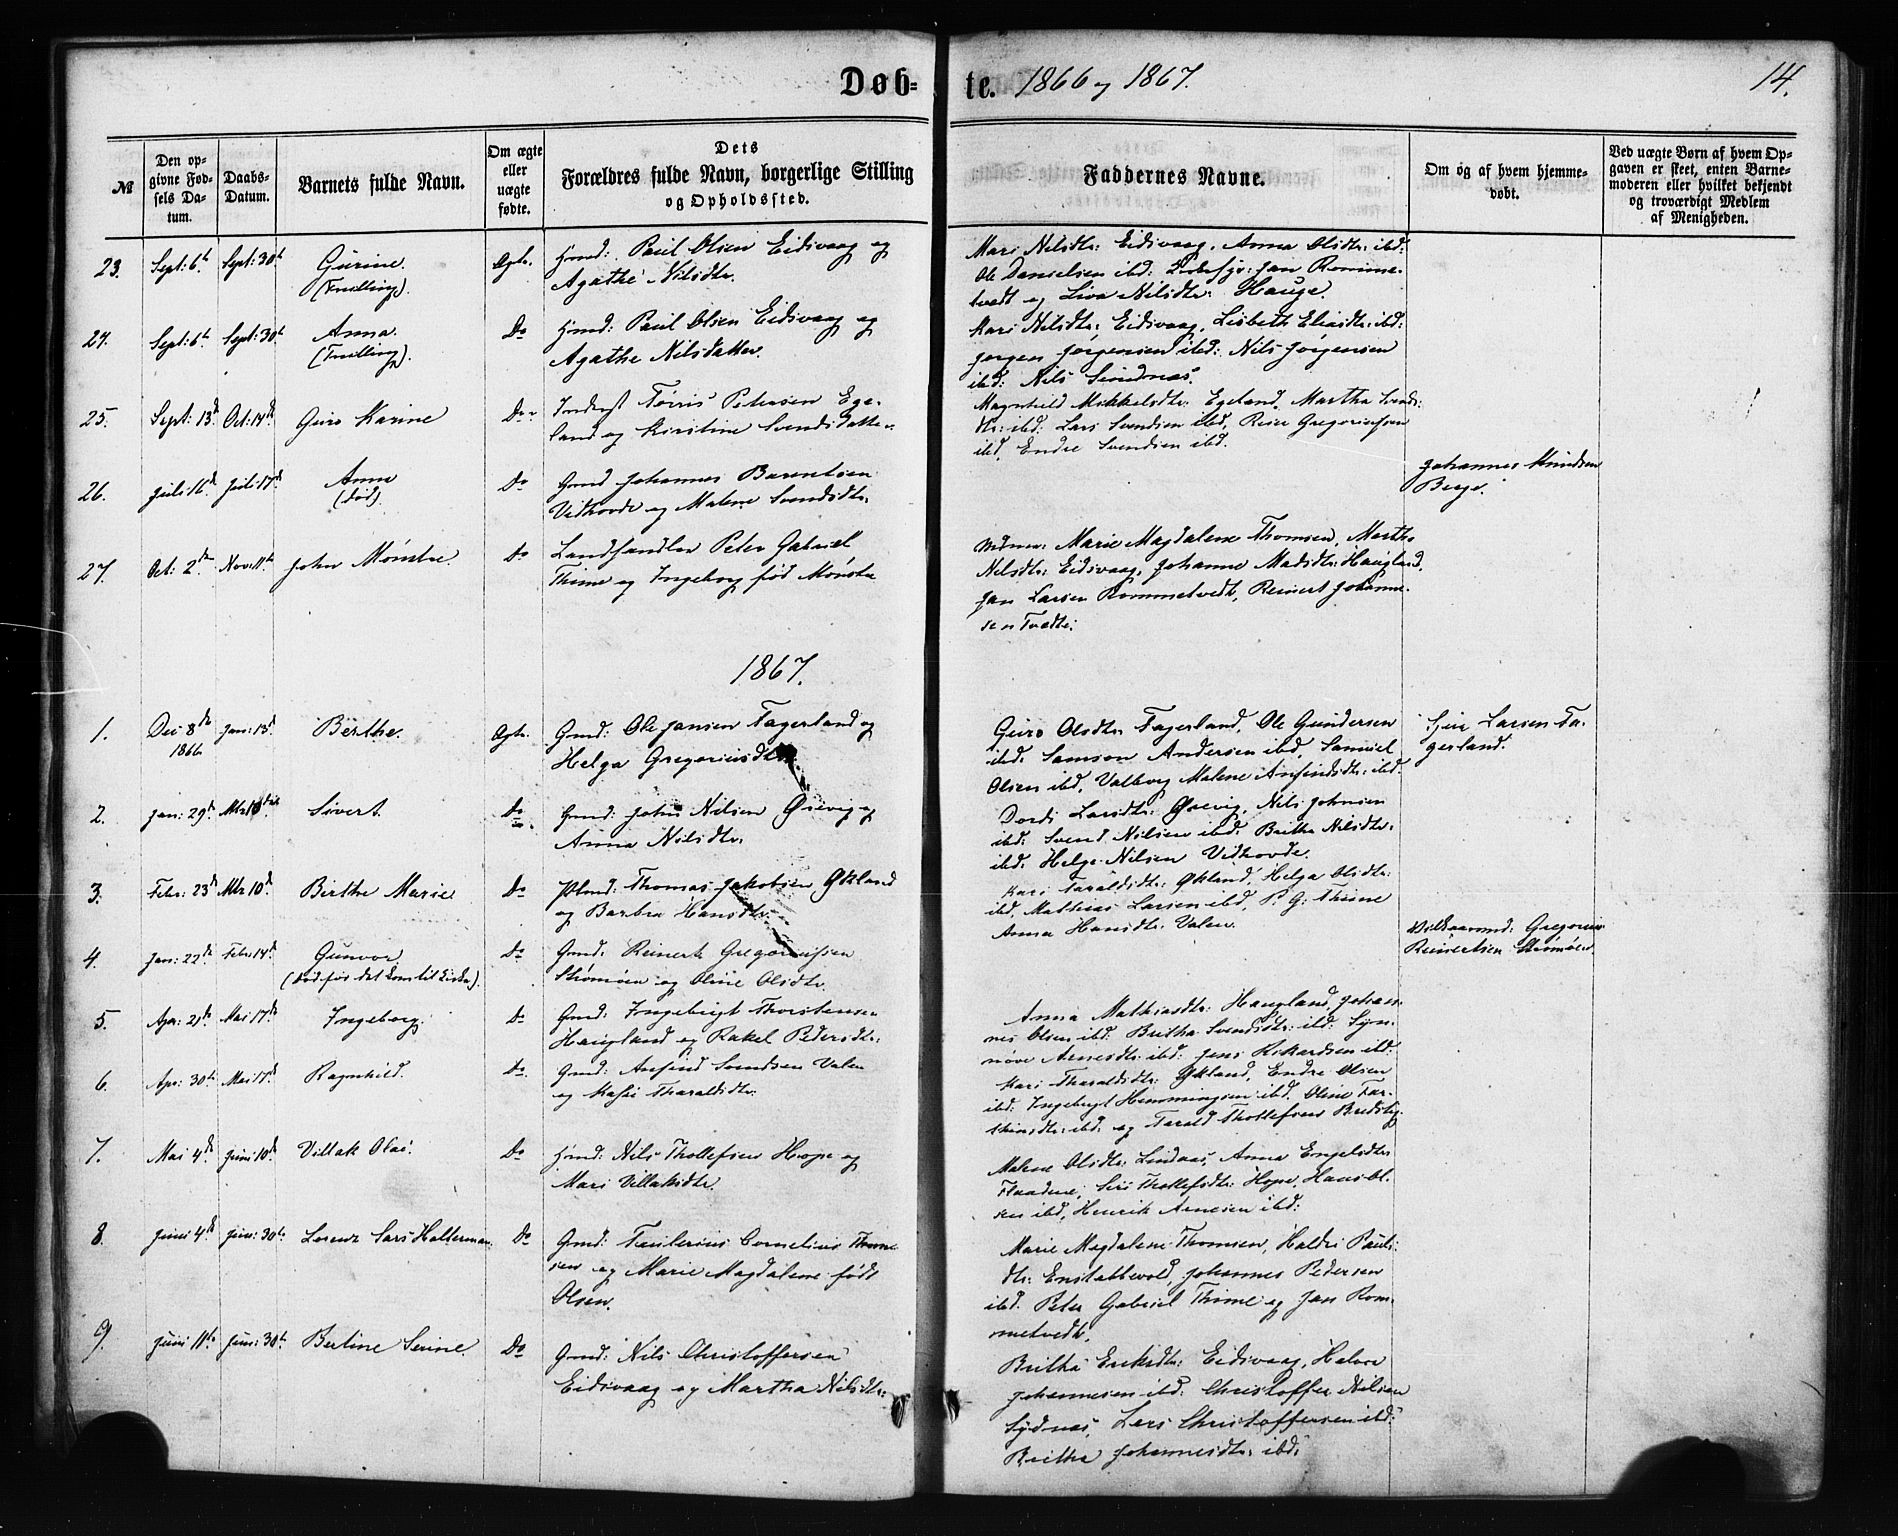 Døb-
te. 1866 og 1867.
14.
№
Den op-
givne Fød-
sels Da-
tum.
Daabs-
Datum.
Barnets fulde Navn.
Om ægte
eller
uægte
fødte.
Dets
Forældres fulde Navn, borgerlige Stilling
og Opholdssted.
Faddernes Navne.
Om og af hvem hjemme-
døbt.
Ved uægte Børn af hvem Op-
gaven er skeet, enten Barne-
moderen eller hvilket bekjendt
og troværdigt Medlem
af Menigheden.
23. Sept: 6te Sept: 30te Gurine. (Tvilling). Ægte. Paul Olsen Eidsvaag og
Agathe Nilsdtr.
Mari Nilsdtr: Eidsvaag, Anna Olsdtr: ibd:
Ole Danielsen ibd: Jan Romme-
tvedt og Liva Nilsdtr: Hauge.
24. Sept: 6te Sept: 30te Anna. (Tvilling). Do Paul Olsen Eidsvaag og
Agathe Nilsdatter.
Kari Nilsdtr: Eidsvaag, Lisbeth Eliasdtr: ibd:
Jørgen Jørgensen ibd: Nils Jørgensen
ibd: Nils
25. Sept: 13de Oct: 14de Guro Karine Do Inderst Tørris Petersen Ege-
land og Kirstine Svendsdatter
Magnhild Mikkelsdtr: Egeland, Martha Svends-
dtr: ibd: Lars Svendsen ibd, Reier Gregoriussen
ibd, Endre Svendsen ibd.
26. Juli 16de Juli 17de Anna (død). Do Gmd Johannes Barentsen
Vidhovde og Malene Svendsdtr.
Johannes Knudsen
Berge.
27. Oct: 2den Nov: 11te John Mønster. Do Landhandler Peter Gabriel
Thime og Ingeborg fød Mønster
Marie Magdalene Thomsen, Martha
Nilsdtr: Eidsvaag, Johanne Madsdtr: Haugland,
Jan Larsen Rommetvedt, Reinert Johanne-
sen Tvedte.
1867.
1. Dec 8de 1866 Jan: 13de Berthe. Ægte. Gmd: Ole Jansen Fagerland og
Helga Gregoriusdtr.
Guro Olsdtr: Fagerland, Ole Gundersen
ibd. Samson Andersen ibd, Samuel
Olsen ibd, Valborg Malene Anfindsdtr: ibd.
Larsen Fa-
gerland.
2. Jan: 29de Mts 10de Sivert. Do Gmd: John Nilsen Ørevig og
Anna Nilsdtr.
Dordi Larsdtr: Ørevig, Nils Johnsen
ibd: Svend Nilsen ibd. Britha Nilsdtr:
ibd. Helge Nilsen Vidhovde.
3. Febr: 23de Mts 10de Birthe Marie Do Plmd: Thomas Jakobsen Økland
og Barbra Hansdtr.
Kari Taraldsdtr: Økland, Helga Olsdtr:
ibd, Mathias Larsen ibd, P. G. Thime
Anna Hansdtr: Valen.
4. Jan: 22de Febr: 14de Gunvor. (død før det kom til Kirken). Do Gmd: Reinert Gregoriussen
Strømøen og Oline Olsdtr.
Vilkaarsmd: Gregorius
Reinertsen Strømøen.
5. Apr: 21de Mai 17de Ingeborg. Do Gmd: Ingebrigt Thorstensen
Haugland og Rakel Pedersdtr.
Anna Mathiasdtr: Haugland, Johan-
nes Olsen ibd: Britha Svendsdtr: ibd: Syn-
nøve Arnesdtr: ibd: Jens Rikardsen ibd:
6. Apr: 30te Mai 17de Ragnhild. Do Gmd: Anfind Svendsen Valen
og Kari Tharaldsdtr.
Kari Tharaldsdtr: Økland, Endre Olsen
ibd: Ingebrigt Hemmingsen ibd. Oline Tor-
ibd. og Tarald Thollefsen
7. Mai 4de Juni 10de Villak Olai. Do Nils Thollefsen Hope og
Mari Villaksdtr.
Malene Olsdtr: Lindaas, Anna Engelsdtr
Siri Thollefsdtr: Hope, Hans Ol-
sen ibd, Henrik Arnesen ibd:
8. Juni 4de Juni: 30te Lorenz Lars Halterman Do Gmd: Cornelius Thom-
sen og Marie Magdalene født
Olsen.
Marie Magdalene Thomsen, Haldri Pauls-
dtr: Enstabbevold, Johannes Pedersen
ibd. Peter Gabriel Thime og Jan Rom-
metvedt.
9. Juni 11te Juni: 30te Bertine Serine. Do Gmd: Nils Christoffersen
Eidsvaag og Martha Nilsdtr:
Britha Eriksdtr: Eidsvaag, Halvor
Johannesen ibd: Christoffer Nilsen
Sydnæs, Lars Christoffersen ibd:
Britha Johannesdtr: ibd: